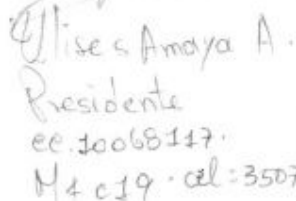 Ulises Amaya A.
Presidente
cc. 10068117.
M4 c19. cel: 3507